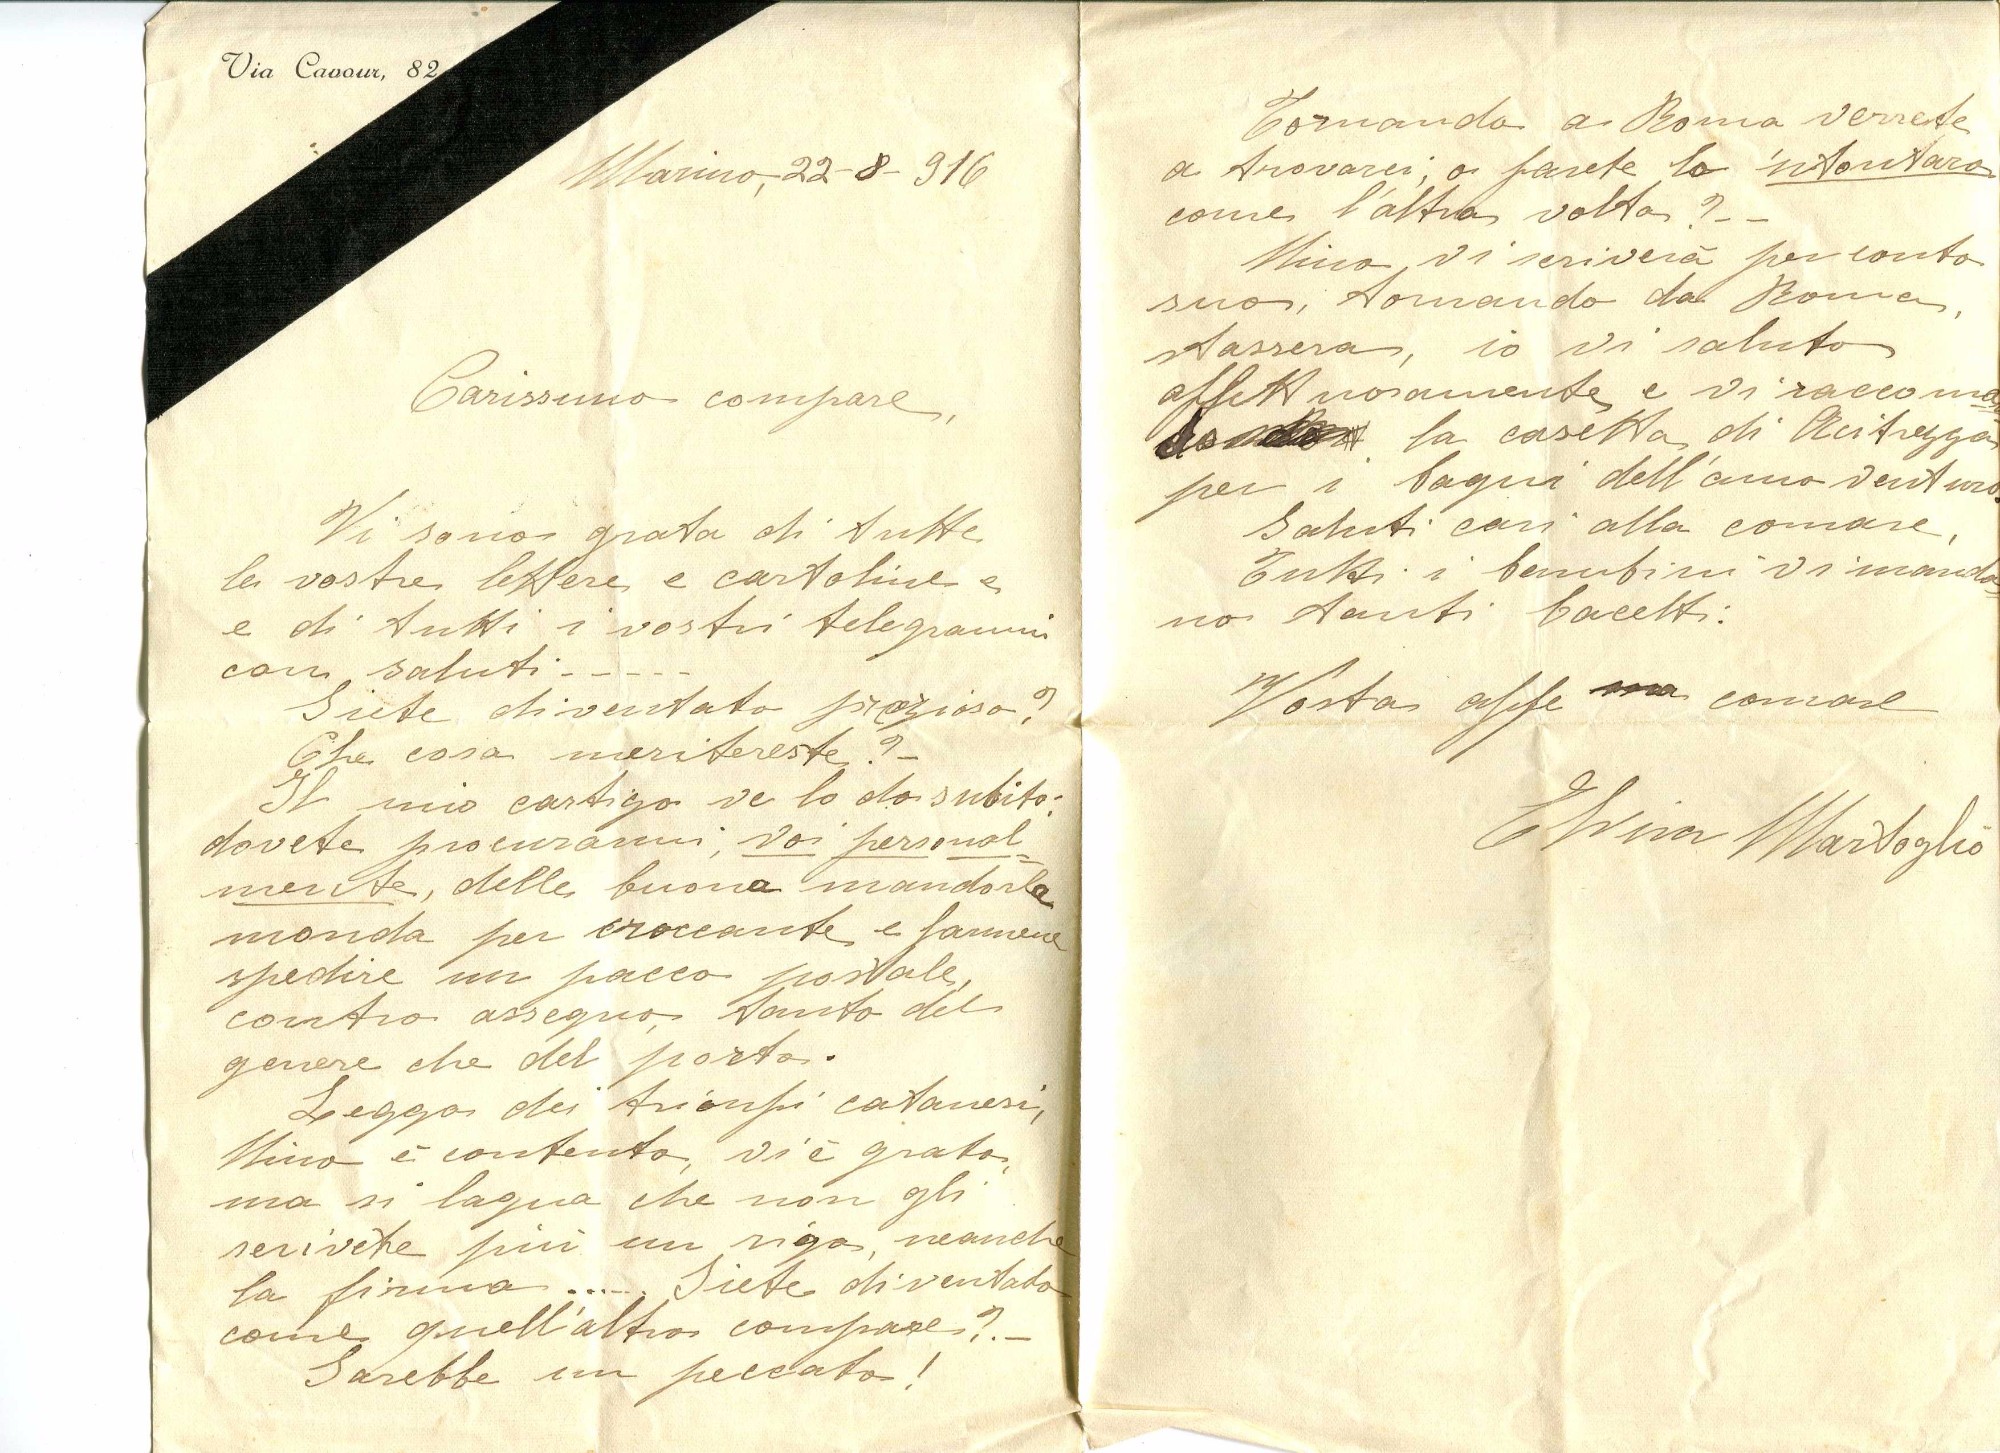 Via Cavour, 82
Marino, 22-8-916
Carissimo compare,
Vi sono grata di tutte
le vostre lettere e cartoline e
e di tutti i vostri telegrammi
con saluti - - - - -
Siete diventato prezioso?
Che cosa meritereste? -
Il mio castigo ve lo do subito:
dovete procurarmi, voi personal=
mente, delle buone mandorle
monda per croccante e farmene
spedire un pacco postale,
contro assegno, tanto del
genere che del porto.
Leggo dei trionfi catanesi,
Nino è contento, vi è grato,
ma si lagna che non gli
scrivete più un rigo, neanche
la firma ..... Siete diventato
come quell'altro compare? . -
Sarebbe un peccato!
Tornando a Roma verrete
a trovarci, o farete lo 'ntontaro
come l'altra volta? - -
Nino vi scriverà per conto
suo, tornando da Roma,
stassera, io vi saluto
affettuosamente e vi raccoman
do la casetta di Acitrezza
per i bagni dell'anno venturo.
Saluti cari alla comare,
Tutti i bambini vi manda=
no tanti bacetti:
Vosta affe comare
Elvira Martoglio